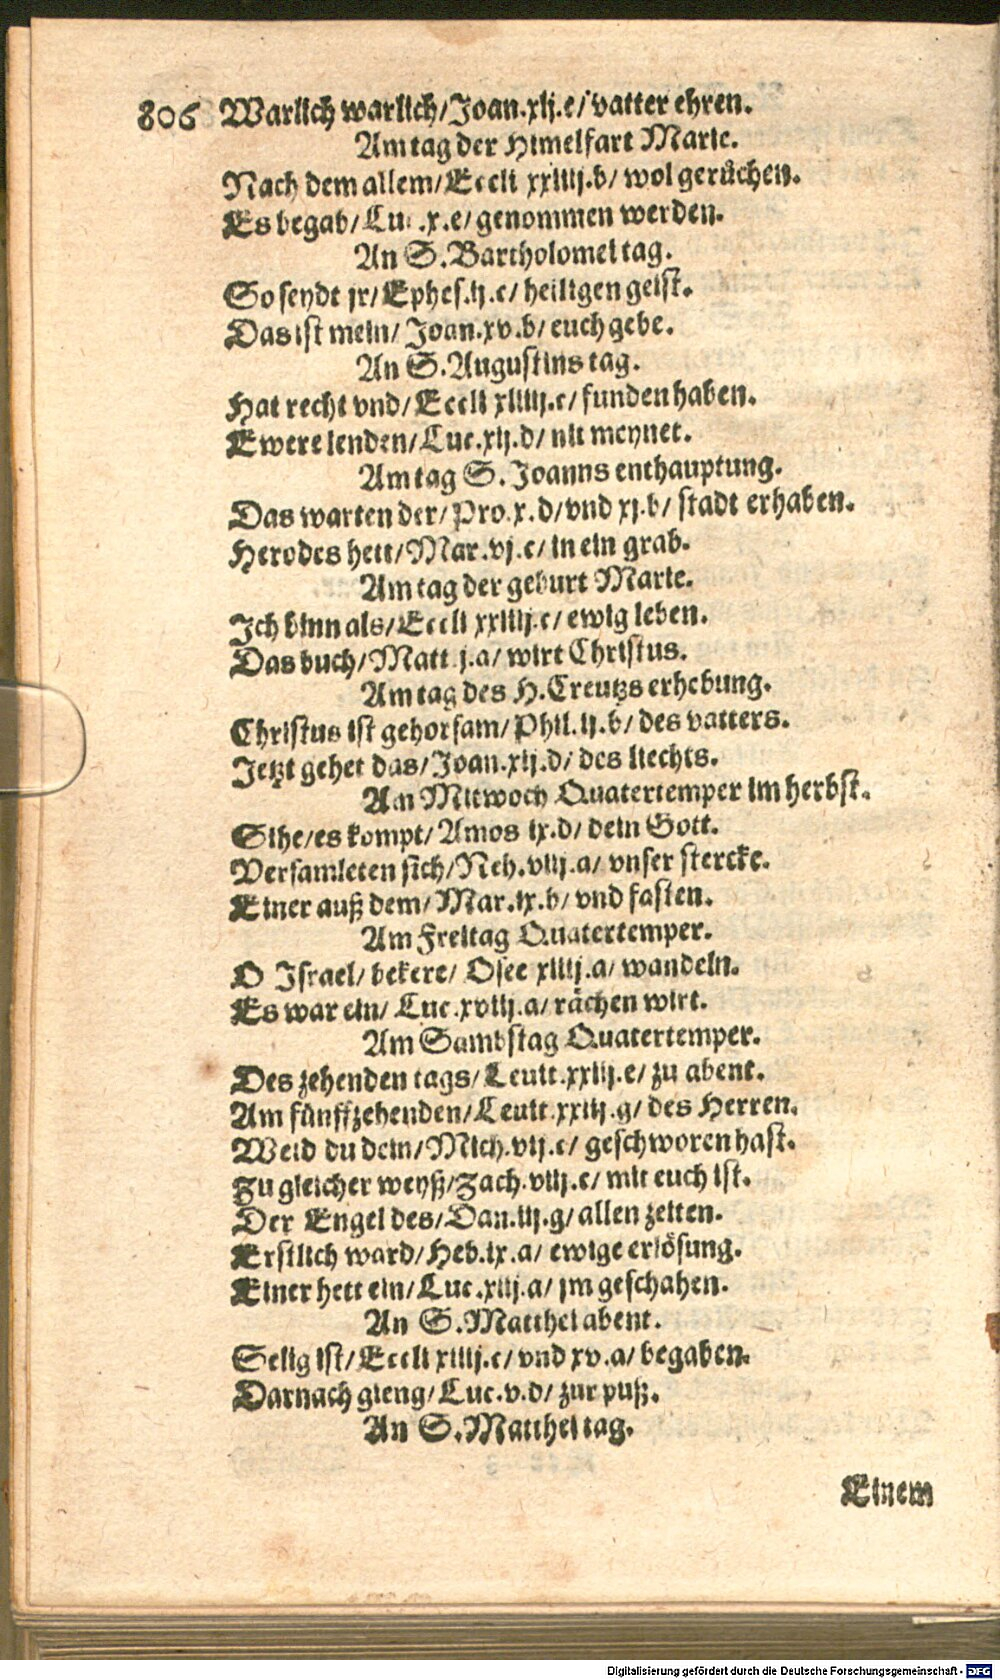 806 Warlich warlich/Joan.xij.e/vatter ehren.
Am tag der Himelfart Marie.
Nach dem allem/Eccli xxiiij.b/wol gerüchen.
Es begab/Luc.x.e/genommen werden.
An S.Bartholomei tag.
So seydt jr/Ephes.ij.c/heiligen geist.
Das ist mein/Joan.xv.b/euch gebe.
An S.Augustins tag.
Hat recht vnd/Eccli xliiij.c/funden haben.
Ewere lenden/Luc.xij.d/nit meynet.
Am tag S.Joanns enthauptung.
Das warten der/Pro.x.d/vnd xj.b/stadt erhaben.
Herodes hett/Mar.vj.c/in ein grab.
Am tag der geburt Marie.
Ich binn als/Eccli xxiiij.c/ewig leben.
Das buch/Matt.j.a/wirt Christus.
Am tag des H.Creutzs erhebung.
Christus ist gehorsam/Phil.ij.b/des vatters.
Jetzt gehet das/Joan.xij.d/des liechts.
Am Mitwoch Quatertemper im herbst.
Sihe/es kompt/Amos ix.d/dein Gott.
Versamleten sich/Neh.viij.a/vnser stercke.
Einer auß dem/Mar.ix.b/vnd fasten.
Am Freitag Quatertemper.
O Israel/bekere/Osee xiiij.a/wandeln.
Es war ein/Luc.xviij.a/rächen wirt.
Am Sambstag Quatertemper.
Des zehenden tags/Leuit.xxiij.e/zu abent.
Am fünffzehenden/Leuit.xxiij.g/des Herren.
Weid du dein/Mich.vij.c/geschworen hast.
Zu gleicher weyß/Zach.viij.c/mit euch ist.
Der Engel des/Dan.iij.g/allen zeiten.
Erstlich ward/Heb.ix.a/ewige erlösung.
Einer hett ein/Luc.xiij.a/jm geschahen.
An S.Matthei abent.
Selig ist/Eccli xiiij.c/vnd xv.a/begaben.
Darnach gieng/Luc.v.d/zur puß.
An S.Matthei tag.
Einem
Digitalisierung gefördert durch die Deutsche Forschungsgemeinschaft - DFG